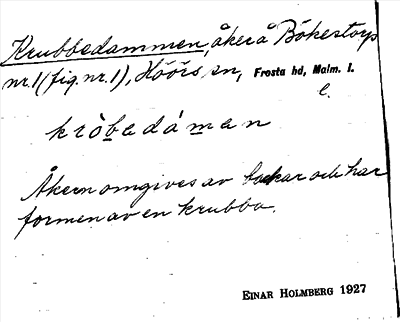 Krubbedammen, åker å Bökestorp
nr. 1 (fig. nr. 1), Höörs sn, Frosta hd, Malm. l.
e.
kròbadáman
Åkern omgives av backar och har
formen av en krubba.
EINAR HOLMBERG 1927